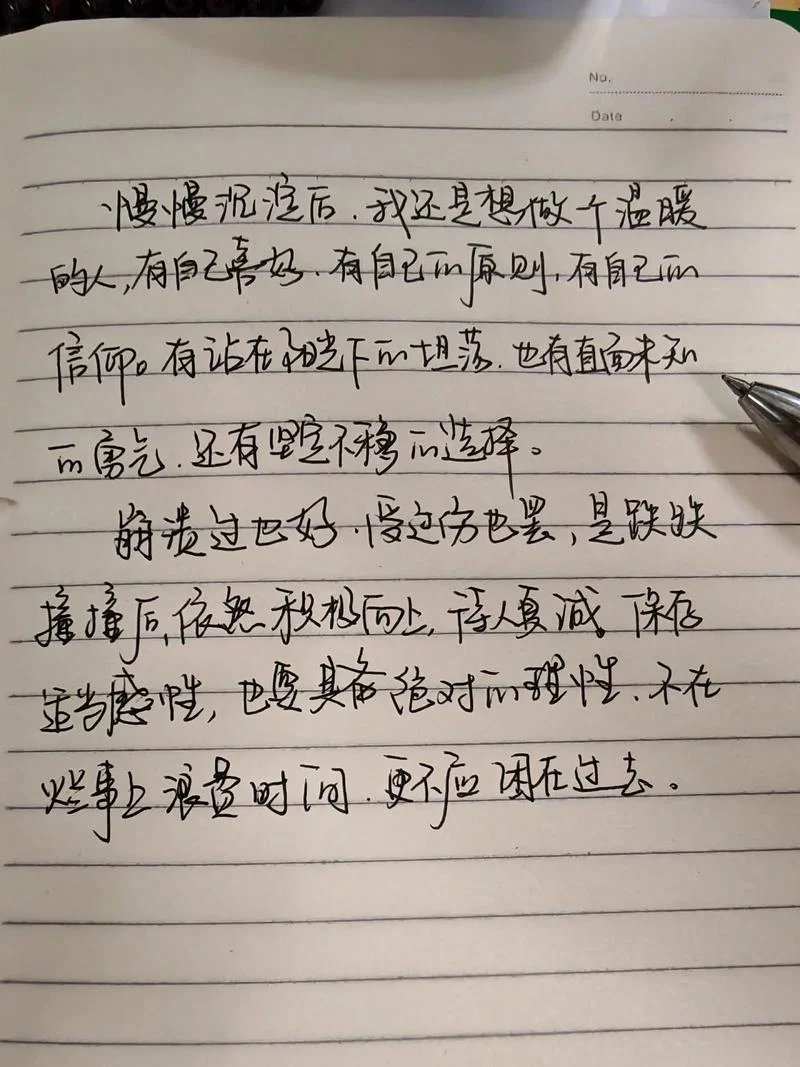 No.
Date
慢慢沉淀后.我还是想做个温暖
的人,有自己喜好.有自己的原则,有自己的
信仰。有站在阳光下的坦荡.也有直面未知
的勇气.还有坚定不移的选择。
崩溃过也好.受过伤也罢,是跌跌
撞撞后,依然积极向上,待人真诚。保存
适当感性,也要具备绝对的理性.不在
烂事上浪费时间.更不应困在过去。